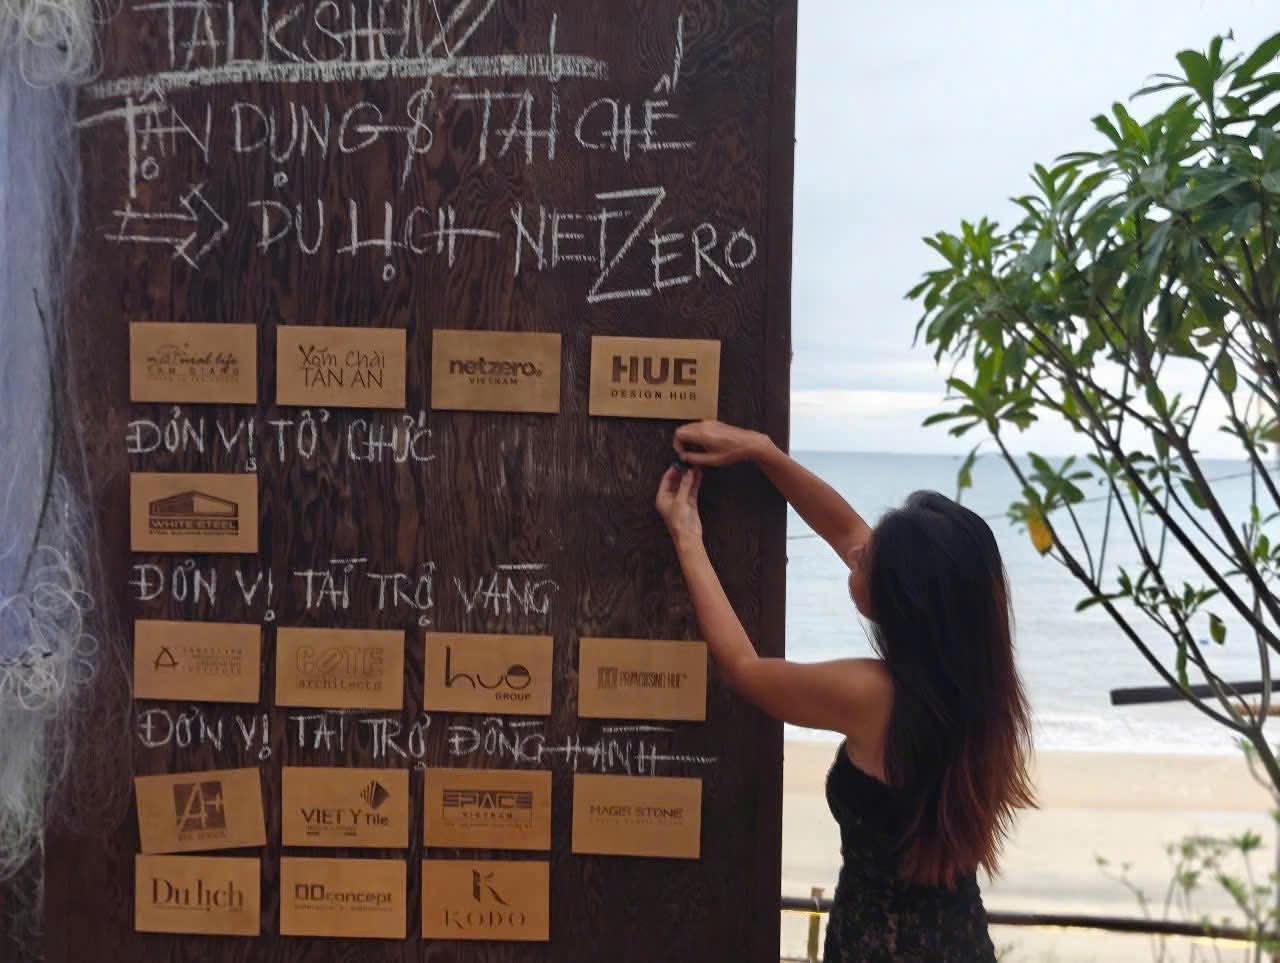 TALKSHOW
TẬN DỤNG & TÁI CHẾ
⇒ DU LỊCH NETZERO
natural life
TAN GIANG
Xóm Chài
TÂN AN
netzero.
VIETNAM
HUE
DESIGN HUB
ĐƠN VỊ TỔ CHỨC
WHITE STEEL
ĐƠN VỊ TÀI TRỢ VÀNG
COTE
architects
huo
GROUP
ĐƠN VỊ TÀI TRỢ ĐỒNG HÀNH
A+
VIET Y Tile
SPACE
VIETNAM
MAGIS STONE
Du lịch
concept
KODO